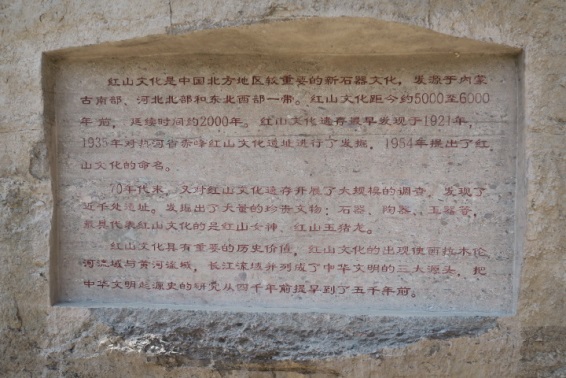 红山文化是中国北方地区较重要的新石器文化，发源于内蒙
古南部、河北北部和东北西部一带。红山文化距今约5000至6000
年前，延续时间约2000年。红山文化遗存最早发现于1921年，
1935年对热河省赤峰红山文化遗址进行了发掘，1954年提出了红
山文化的命名。
70年代末，又对红山文化遗存开展了大规模的调查，发现了
近千处遗址。发掘出了大量的珍贵文物：石器、陶器、玉器等，
最具代表红山文化的是红山女神、红山玉猪龙。
红山文化具有重要的历史价值，红山文化的出现使西拉木伦
河流域与黄河流域，长江流域并列成了中华文明的三大源头，把
中华文明起源史的研究从四千年前提早到了五千年前。